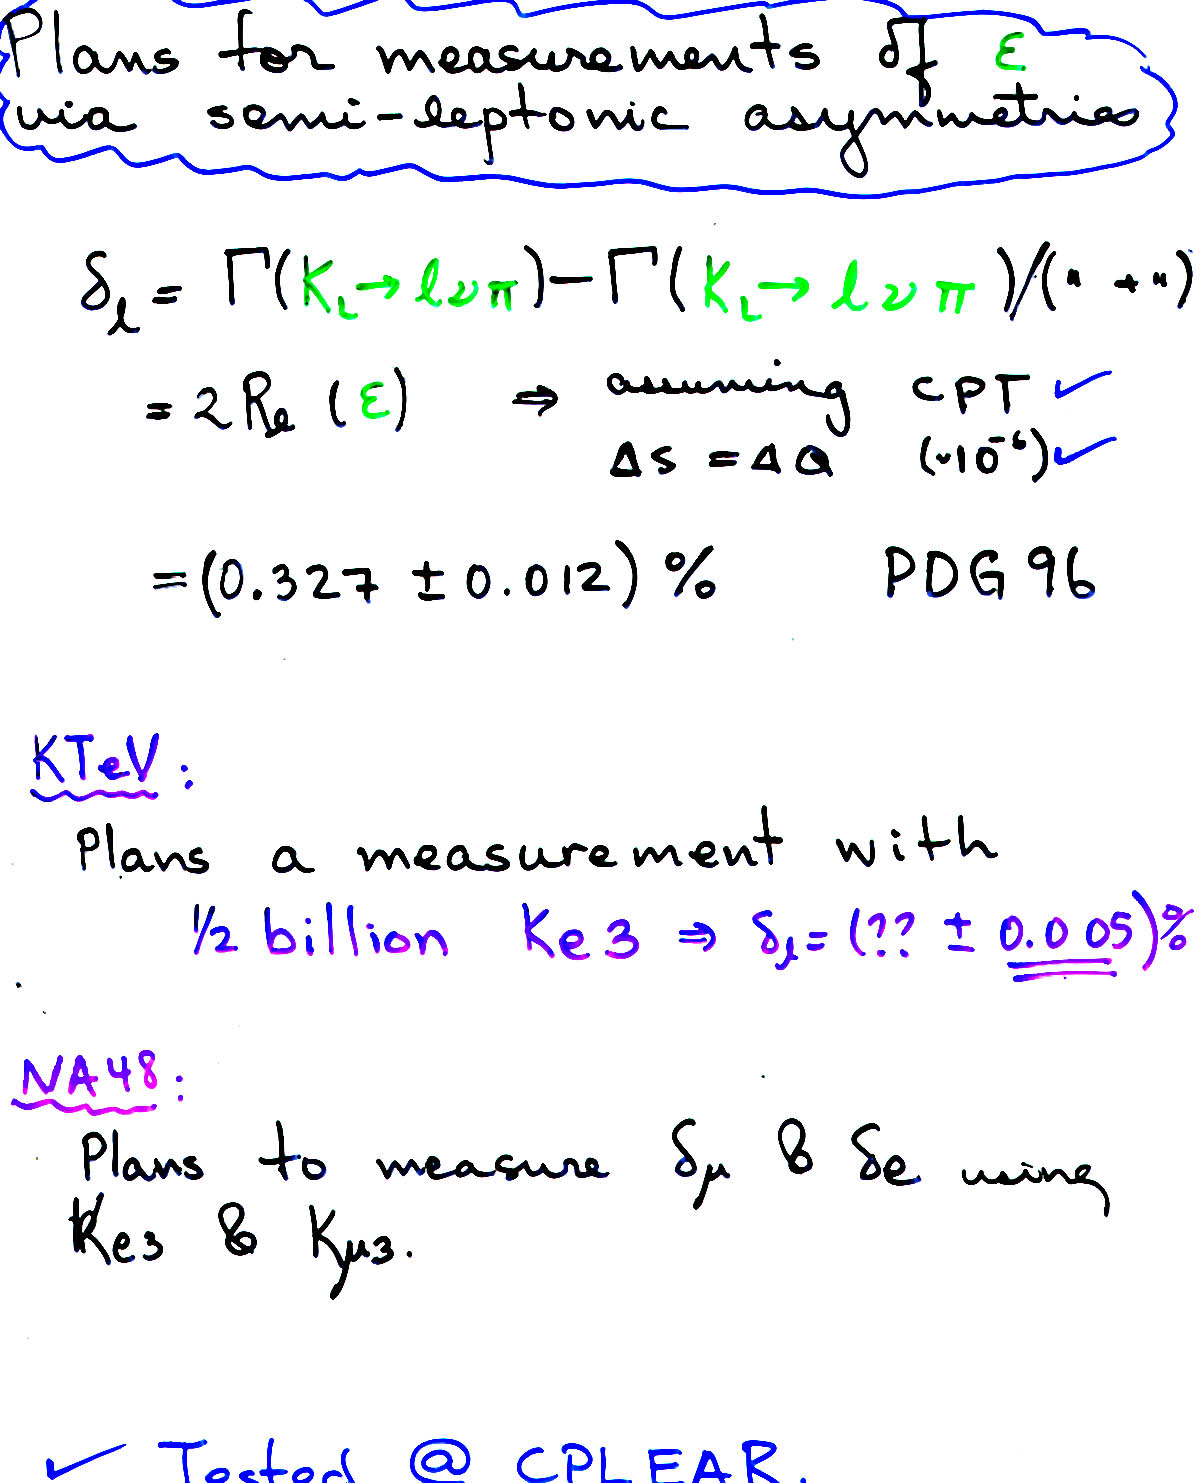 Plans for measurements of ε
via semi-leptonic asymmetries
δ_l = Γ(K_L → l ν π) − Γ(K_L → l ν π)/(" + ")
= 2 Re (ε) ⇒ assuming CPT ✓
ΔS = ΔQ (~10⁻⁶) ✓
= (0.327 ± 0.012) % PDG 96
KTeV:
Plans a measurement with
1/2 billion Ke3 ⇒ δ_l = (?? ± 0.005)%
NA48:
Plans to measure δ_μ & δe using
Ke3 & Kμ3.
✓ Tested @ CPLEAR.